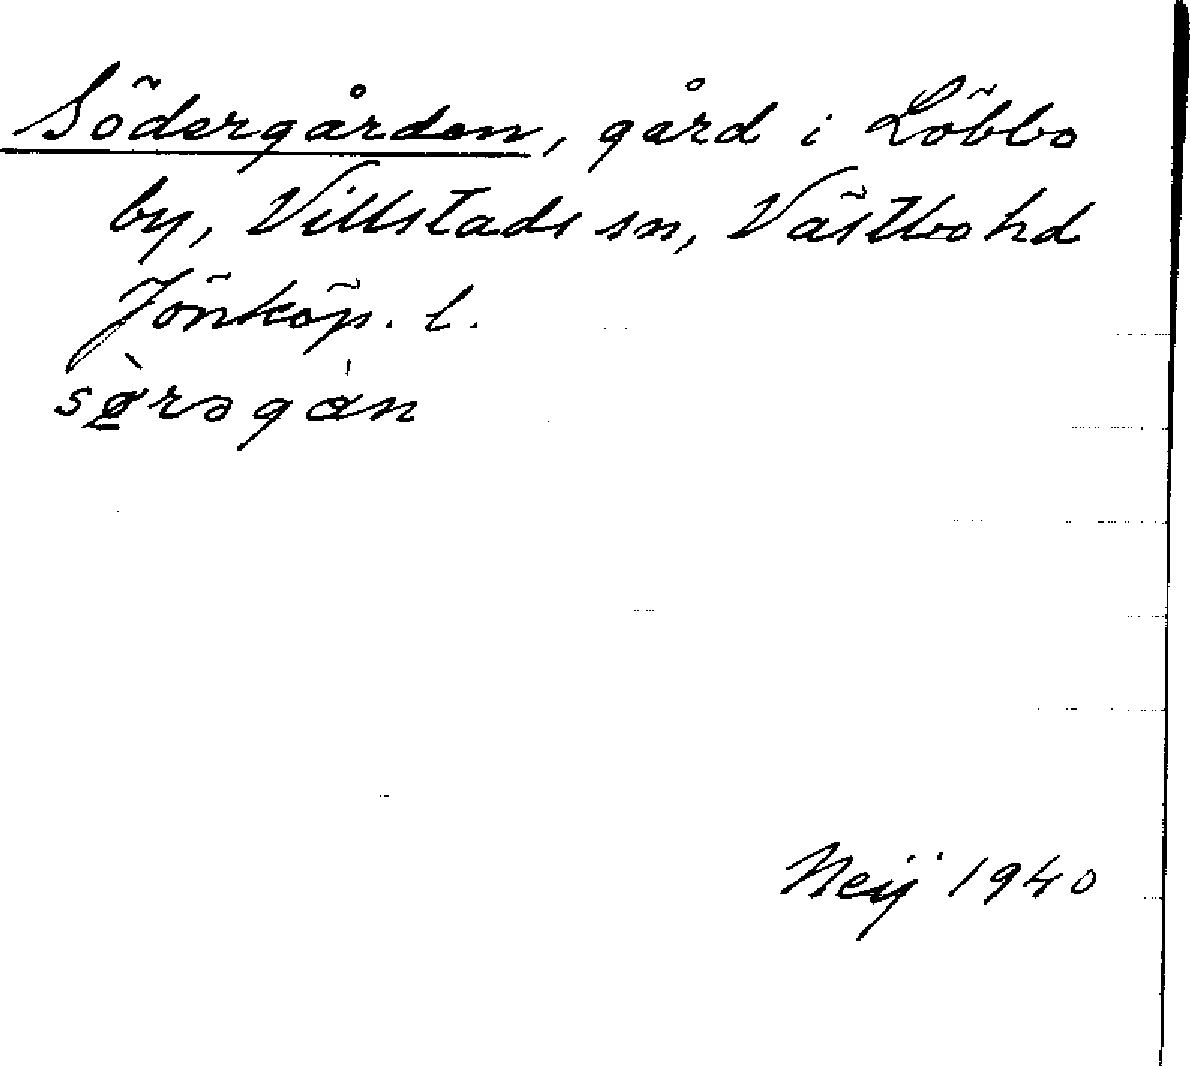 Södergården, gård i Löbbo
by, Villstads sn, Västbo hd
Jönköp. l.
Neij 1940